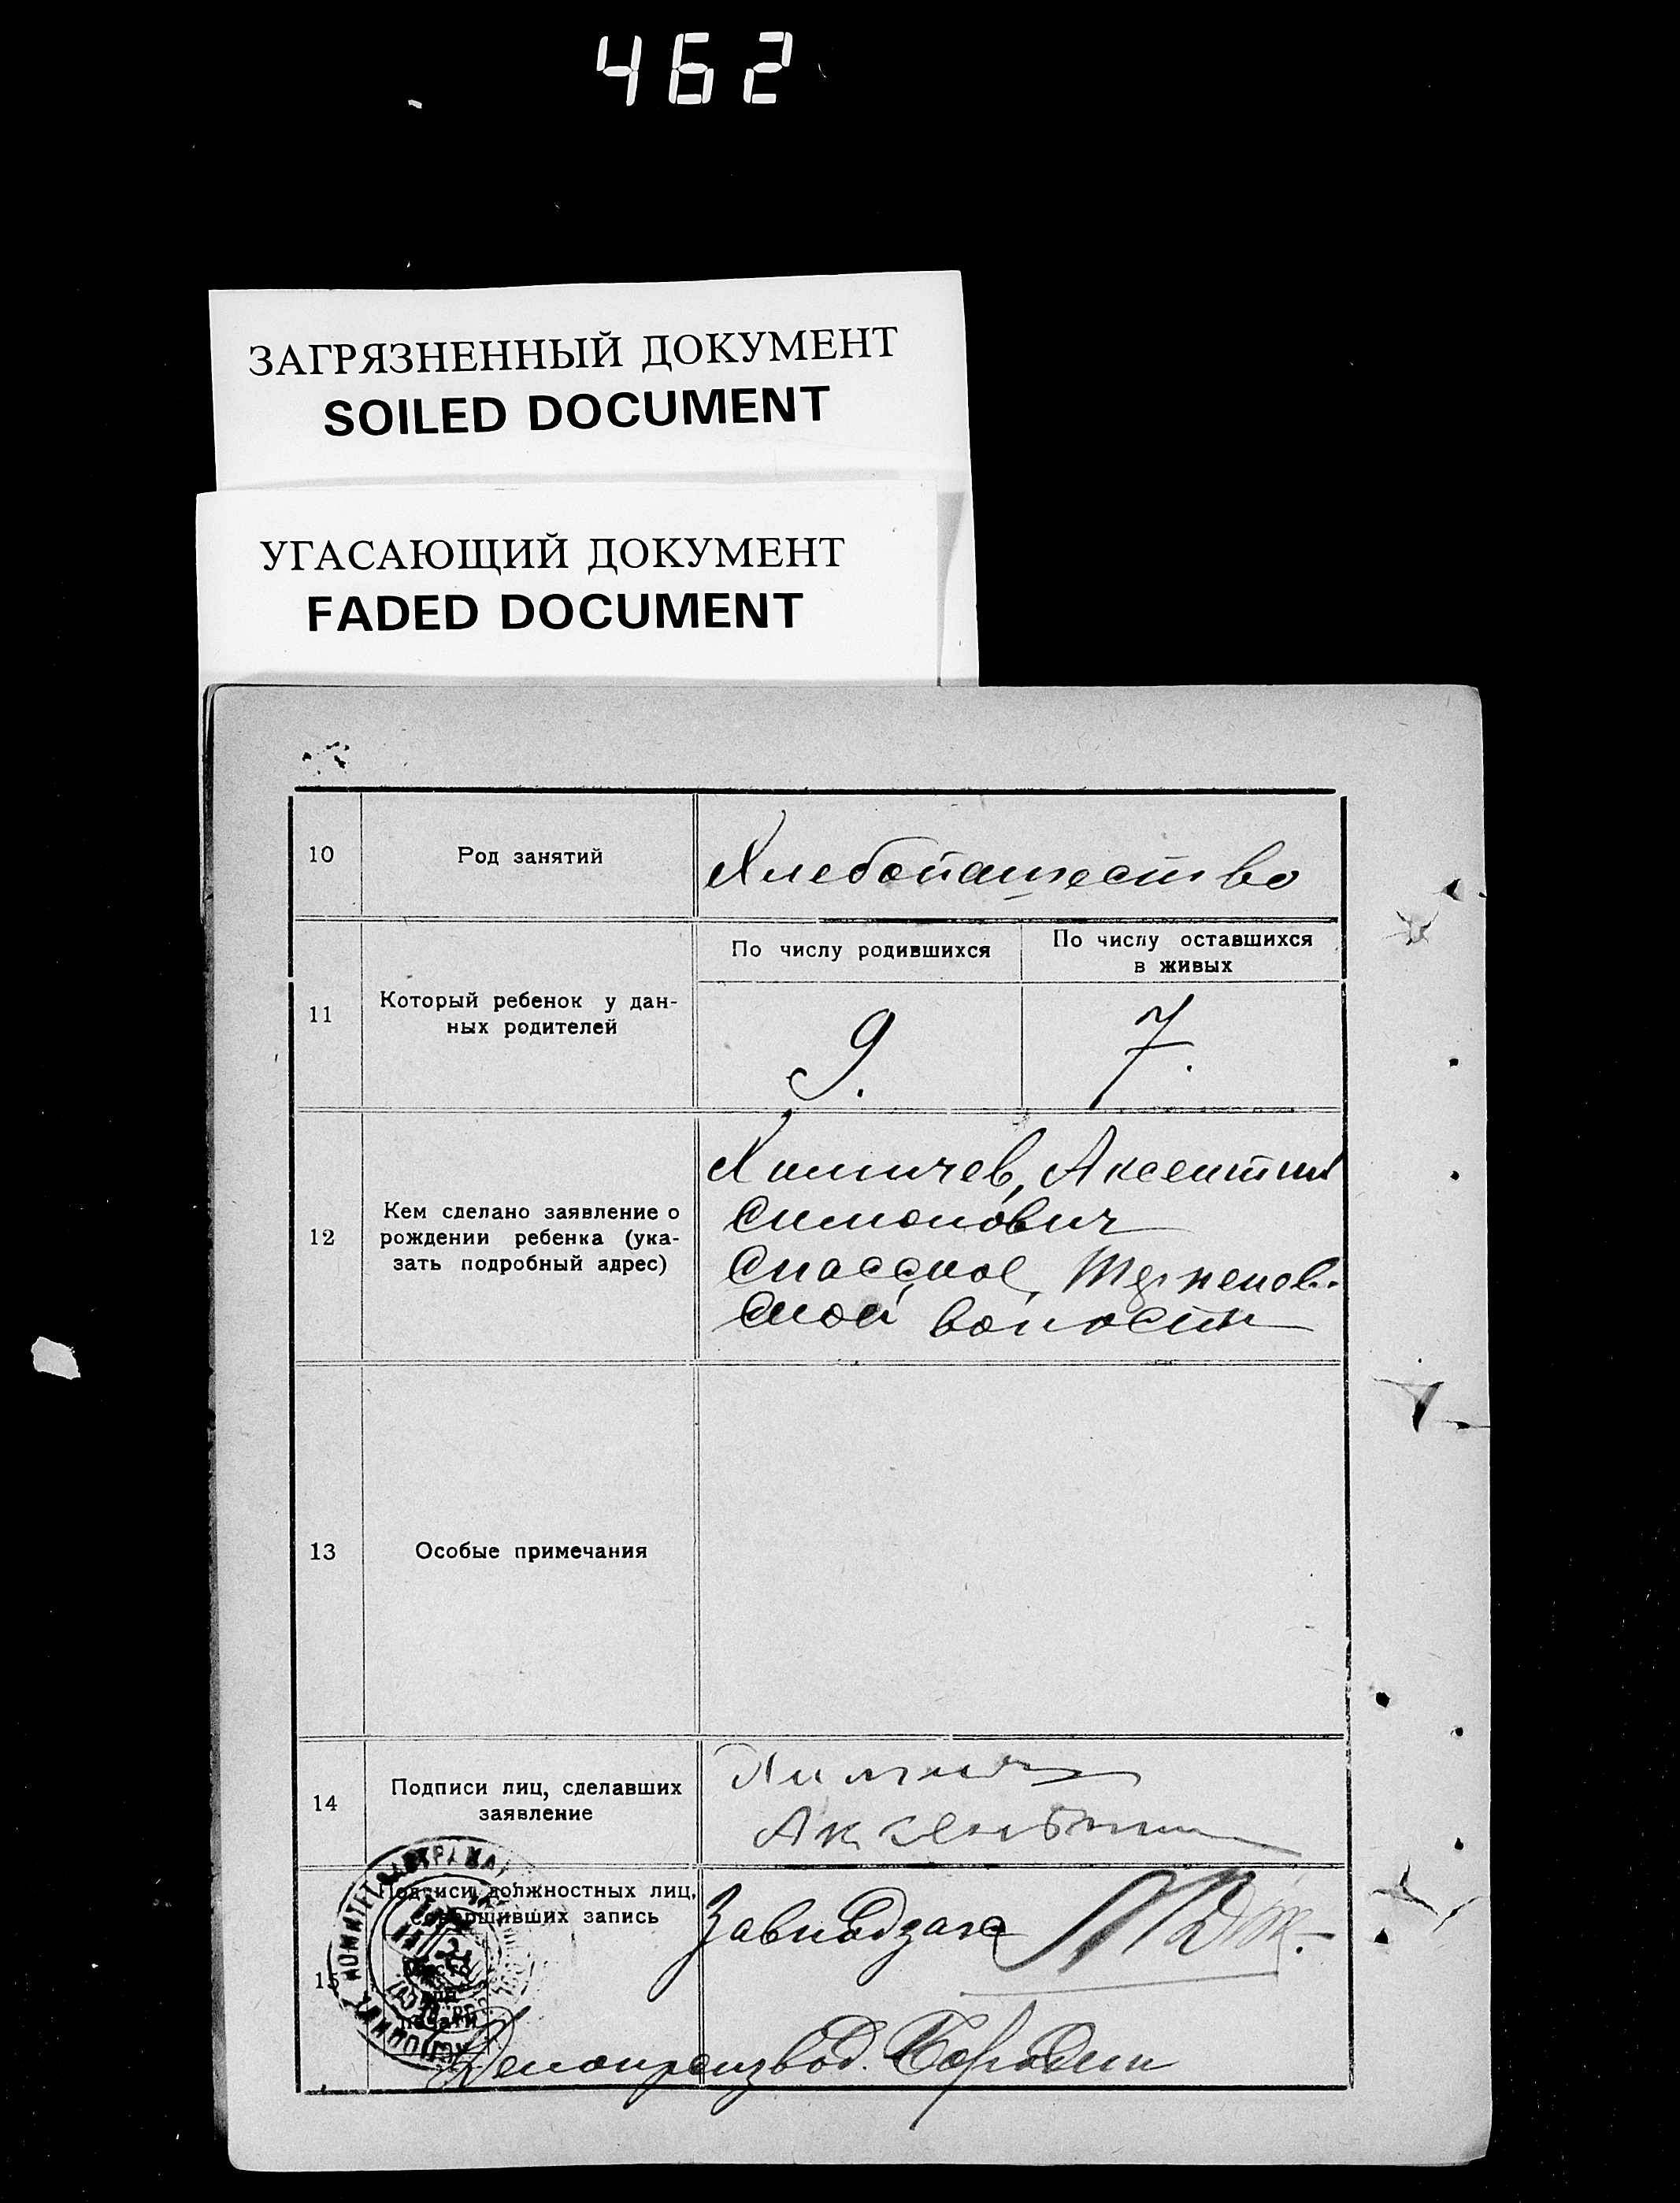 462
ЗАГРЯЗНЕННЫЙ ДОКУМЕНТ
SOILED DOCUMENT
УГАСАЮЩИЙ ДОКУМЕНТ
FADED DOCUMENT
10 Род занятий Хлебопашество
11 Который ребенок у дан-
ных родителей
По числу родившихся
9.
По числу оставшихся
в живых
7.
12 Кем сделано заявление о
рождении ребенка (ука-
зать подробный адрес)
Химичев, Аксентий
Симонович
Спасское,
ской волости
13 Особые примечания
14 Подписи лиц, сделавших
заявление
Аксентий
15 Подписи должностных лиц,
совершивших запись
Место
для
печати
Завподзагс
Делопроизвод. Бородин